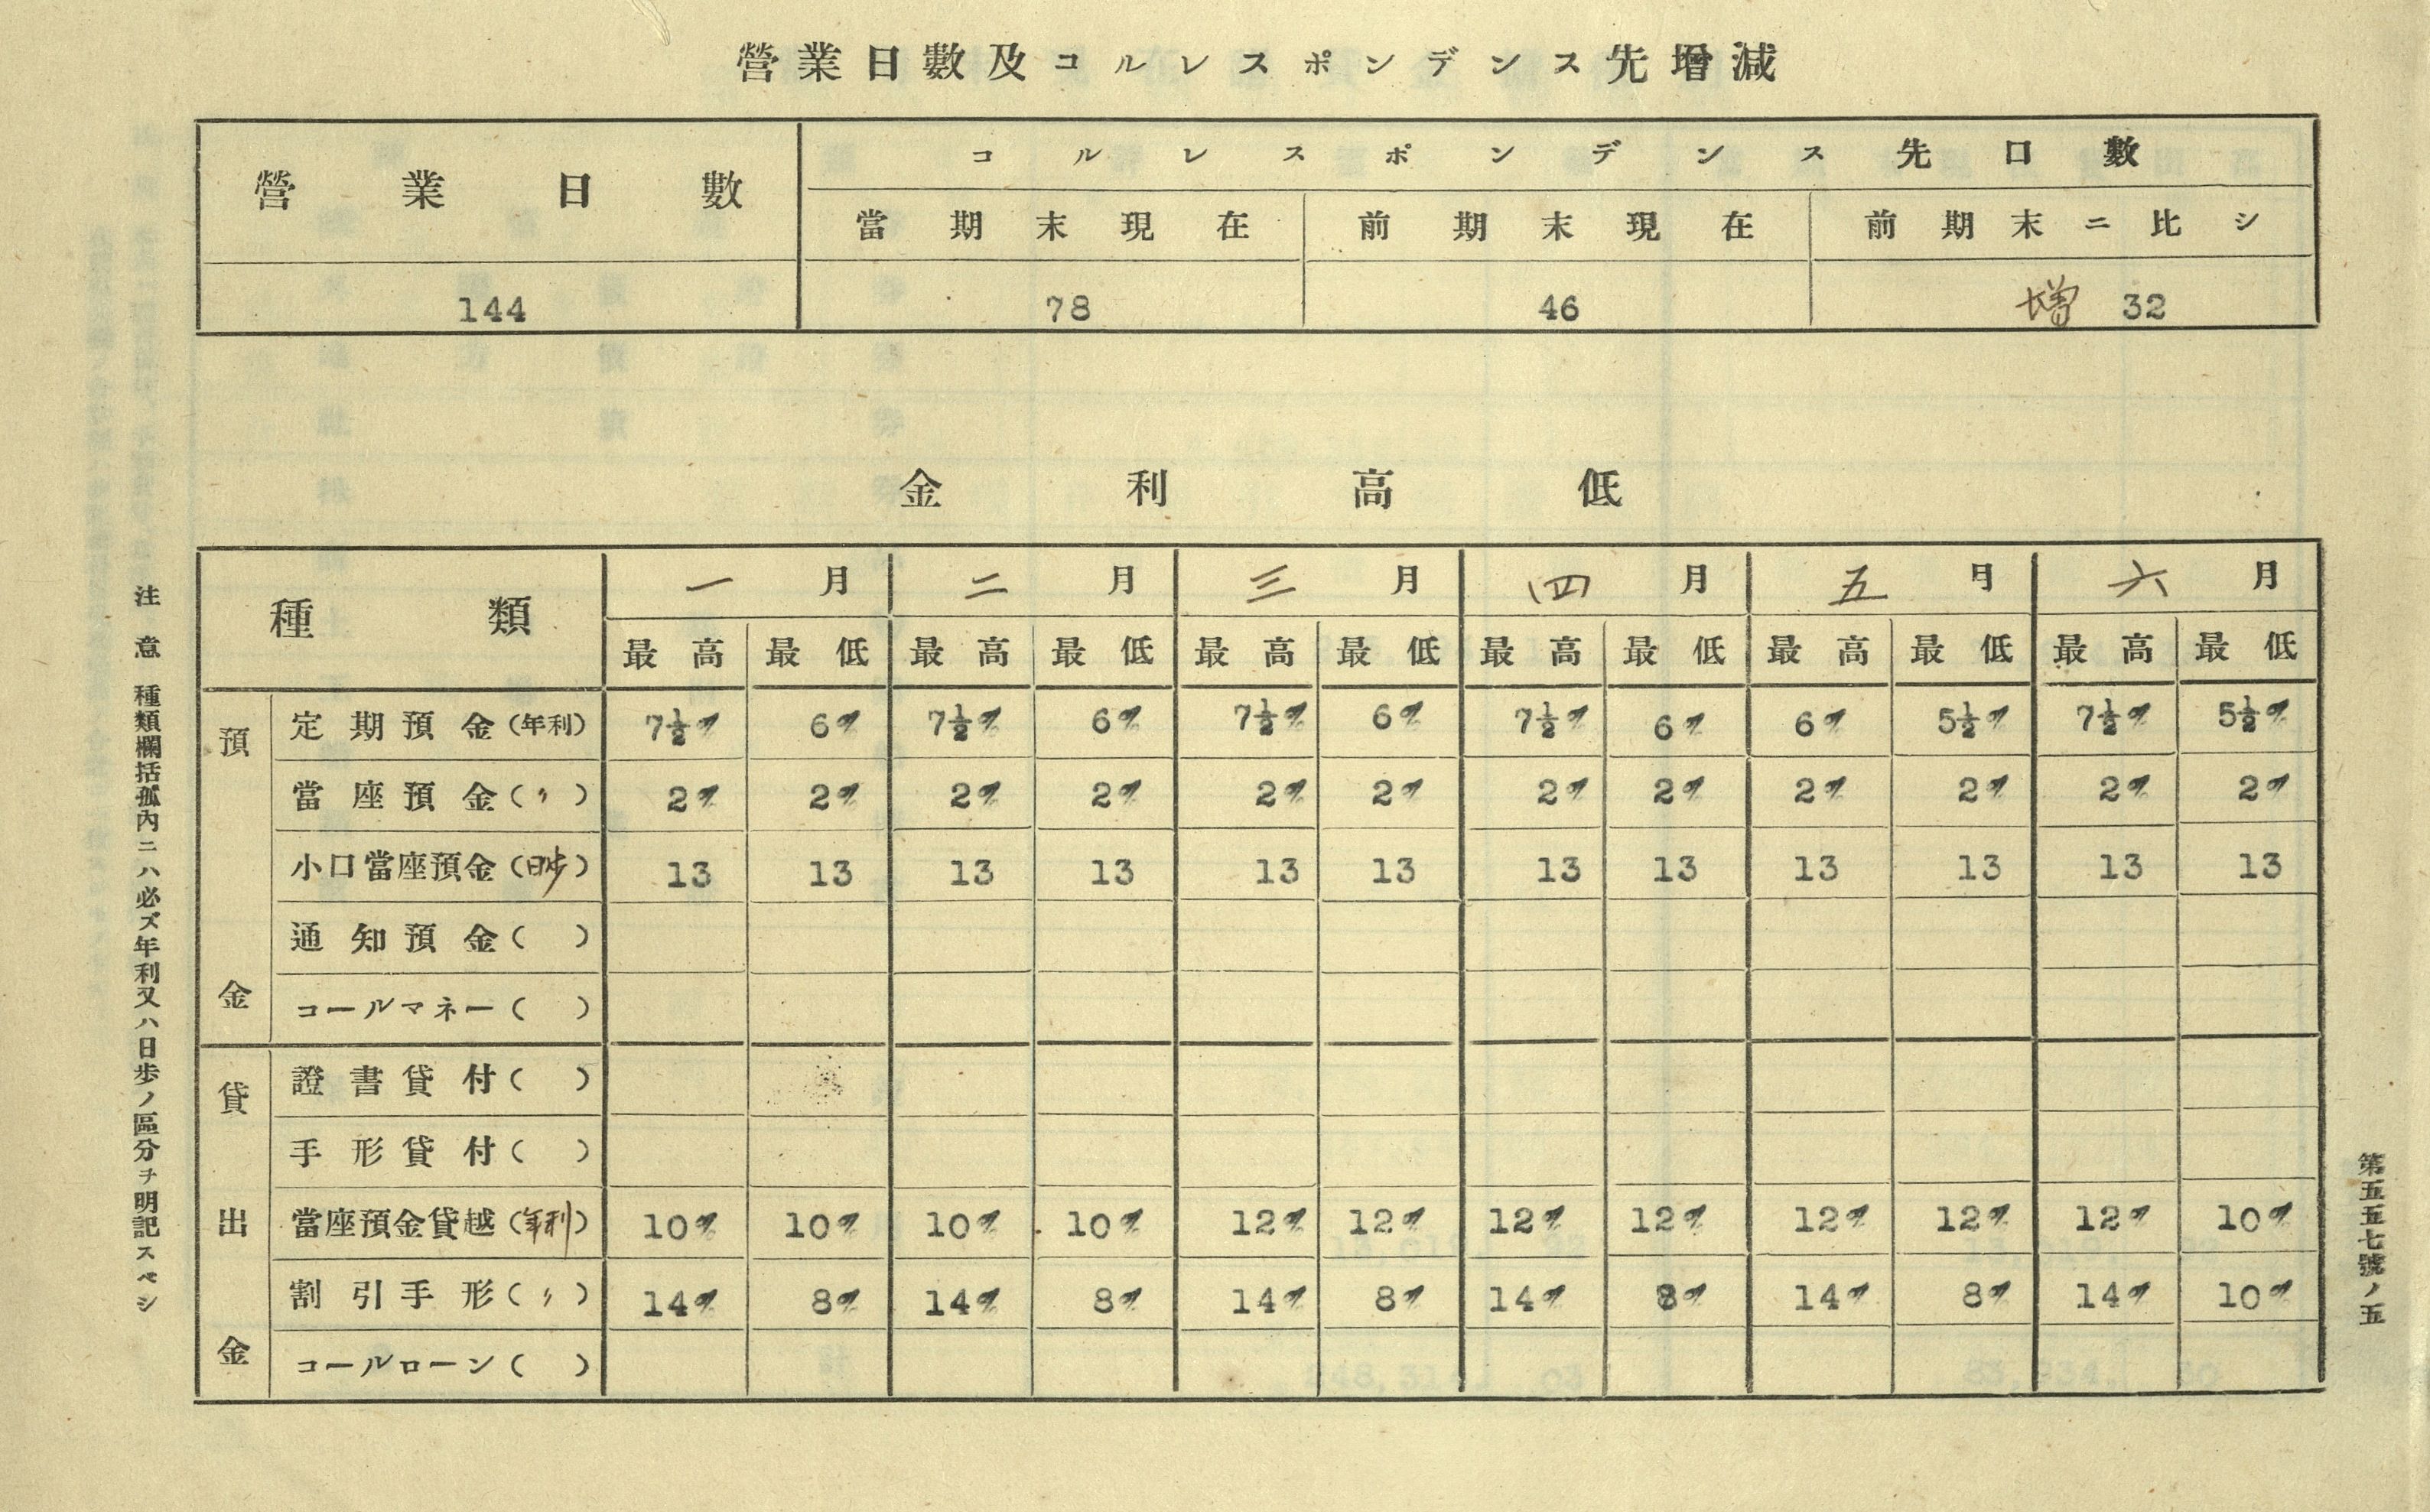 營業日數及コルレスポンデンス先增減
營業日數 コルレスポンデンス先口數
當期末現在 前期末現在 前期末ニ比シ
144 78 46 増 32
金利高低
種類 一月 二月 三月 四月 五月 六月
最高 最低 最高 最低 最高 最低 最高 最低 最高 最低 最高 最低
預金
定期預金(年利) 7½% 6% 7½% 6% 7½% 6% 7½% 6% 6% 5½% 7½% 5½%
當座預金(〃) 2% 2% 2% 2% 2% 2% 2% 2% 2% 2% 2% 2%
小口當座預金(日歩) 13 13 13 13 13 13 13 13 13 13 13 13
通知預金( )
コールマネー( )
貸出金
證書貸付( )
手形貸付( )
當座預金貸越(年利) 10% 10% 10% 10% 12% 12% 12% 12% 12% 12% 12% 10%
割引手形(〃) 14% 8% 14% 8% 14% 8% 14% 8% 14% 8% 14% 10%
コールローン( )
注意 種類欄括孤內ニハ必ズ年利又ハ日歩ノ區分ヲ明記スベシ
第五五七號ノ五